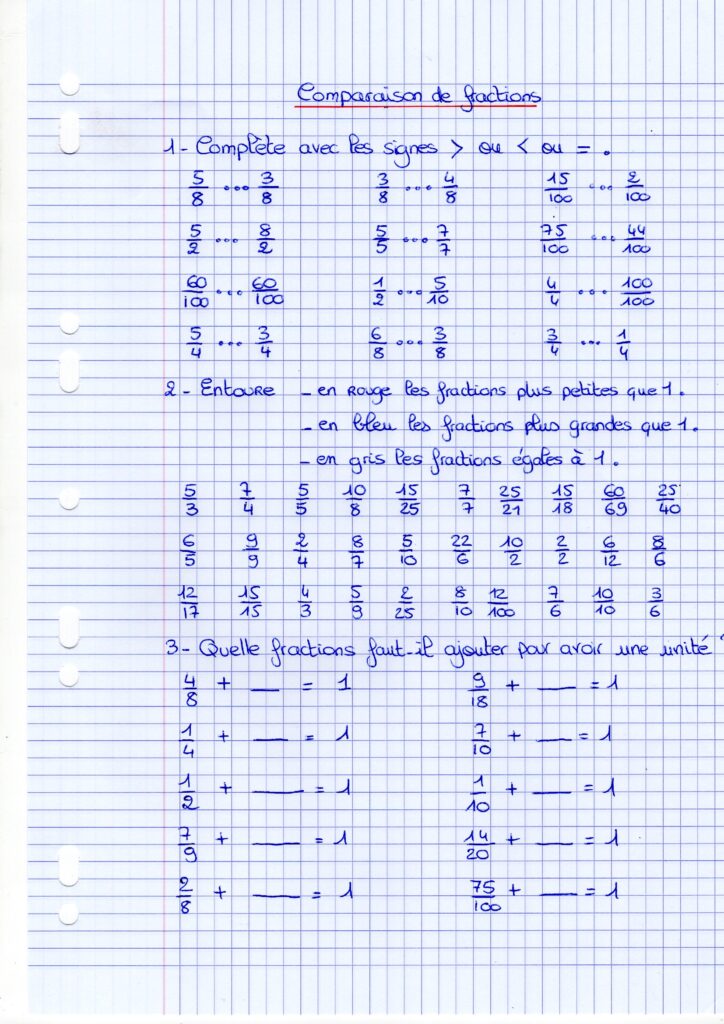 Comparaison de fractions
1 - Complète avec les signes > ou < ou = .
5/8 ... 3/8 3/8 ... 4/8 15/100 ... 2/100
5/2 ... 8/2 5/5 ... 7/7 75/100 ... 44/100
60/100 ... 60/100 1/2 ... 5/10 4/4 ... 100/100
5/4 ... 3/4 6/8 ... 3/8 3/4 ... 1/4
2 - Entoure - en rouge les fractions plus petites que 1 .
- en bleu les fractions plus grandes que 1 .
- en gris les fractions égales à 1 .
5/3 7/4 5/5 10/8 15/25 7/7 25/21 15/18 60/69 25/40
6/5 9/9 2/4 8/7 5/10 22/6 10/2 2/2 6/12 8/6
12/17 15/15 4/3 5/9 2/25 8/10 12/100 7/6 10/10 3/6
3 - Quelle fractions faut-il ajouter pour avoir une unité ?
4/8 + __ = 1 9/18 + __ = 1
1/4 + __ = 1 7/10 + __ = 1
1/2 + __ = 1 1/10 + __ = 1
7/9 + __ = 1 14/20 + __ = 1
2/8 + __ = 1 75/100 + __ = 1